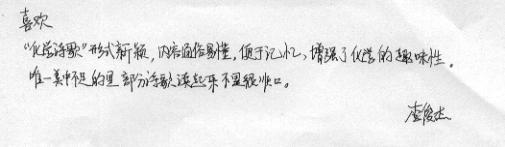 喜欢
“化学诗歌”形式新颖，内容通俗易懂，便于记忆，增强了化学的趣味性。
唯一美中不足的是部分诗歌读起来不是很顺口。
李俊杰